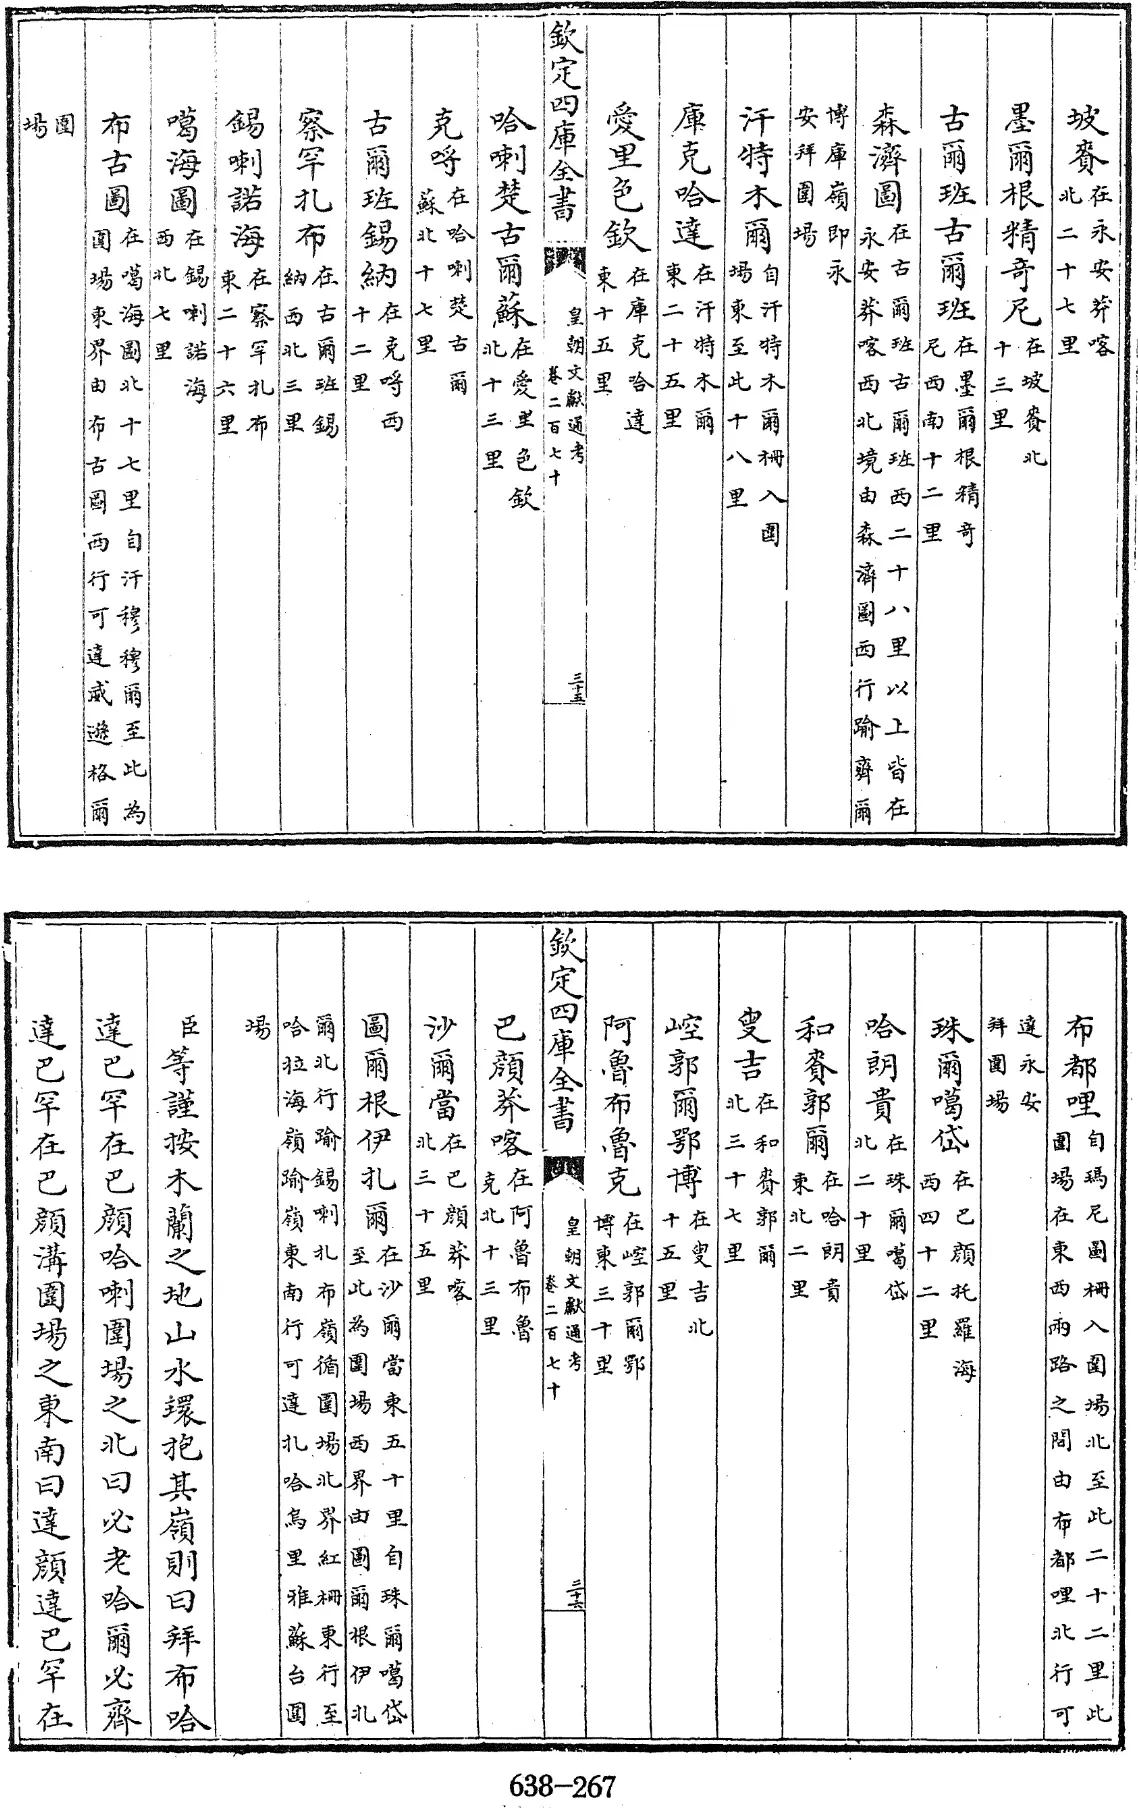 坡賚在永安莽喀北二十七里
墨爾根精奇尼在坡賚北十三里
古爾班古爾班在墨爾根精奇尼西南十二里
森濟圖在古爾班古爾班西二十八里以上皆在永安莽喀西北境由森濟圖西行踰齊爾
博庫嶺即永安拜圍場
汗特木爾自汗特木爾柵入圍場東至此十八里
庫克哈達在汗特木爾東二十五里
愛里色欽在庫克哈達東十五里
欽定四庫全書 皇朝文獻通考卷二百七十 三十五
哈喇楚古爾蘇在愛里色欽北十三里
克呼在哈喇楚古爾蘇北十七里
古爾班錫納在克呼西十二里
察罕扎布在古爾班錫納西北三里
錫喇諾海在察罕扎布東二十六里
噶海圖在錫喇諾海西北七里
布古圖在噶海圖北十七里自汗穆穆爾至此為圍場東界由布古圖西行可達威遜格爾
圍場
布都哩自瑪尼圖柵入圍場北至此二十二里此圍場在東西兩路之間由布都哩北行可
達永安拜圍場
珠爾噶岱在巴顏托羅海西四十二里
哈朗貴在珠爾噶岱北二十里
和賚郭爾在哈朗貴東北二里
叟吉在和賚郭爾北三十七里
崆郭爾鄂博在叟吉北十五里
阿魯布魯克在崆郭爾鄂博東三十里
欽定四庫全書 皇朝文獻通考卷二百七十 三十六
巴顏莽喀在阿魯布魯克北十三里
沙爾當在巴顏莽喀北三十五里
圖爾根伊扎爾在沙爾當東五十里自珠爾噶岱至此為圍場西界由圖爾根伊扎
爾北行踰錫喇扎布嶺循圍場北界紅柵東行至哈拉海嶺踰嶺東南行可達扎哈烏里雅蘇台圍
場
臣等謹按木蘭之地山水環抱其嶺則曰拜布哈
達巴罕在巴顏哈喇圍場之北曰必老哈爾必齊
達巴罕在巴顏溝圍場之東南曰達顏達巴罕在
638-267